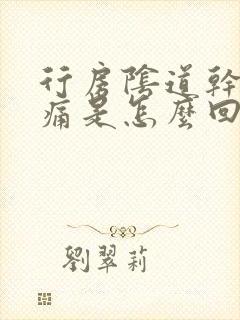 行房陰道幹
痛是怎麼回
劉翠莉